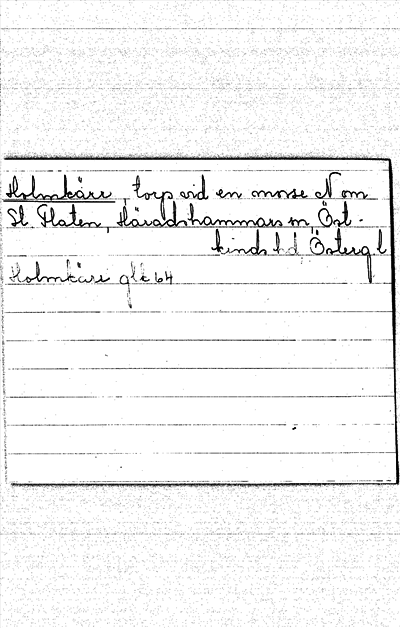 Holmkärr, torp vid en mosse N om
St. Flaten, Häradshammars sn Öst-
kinds hd Österg. l
Holmkärr glk 64